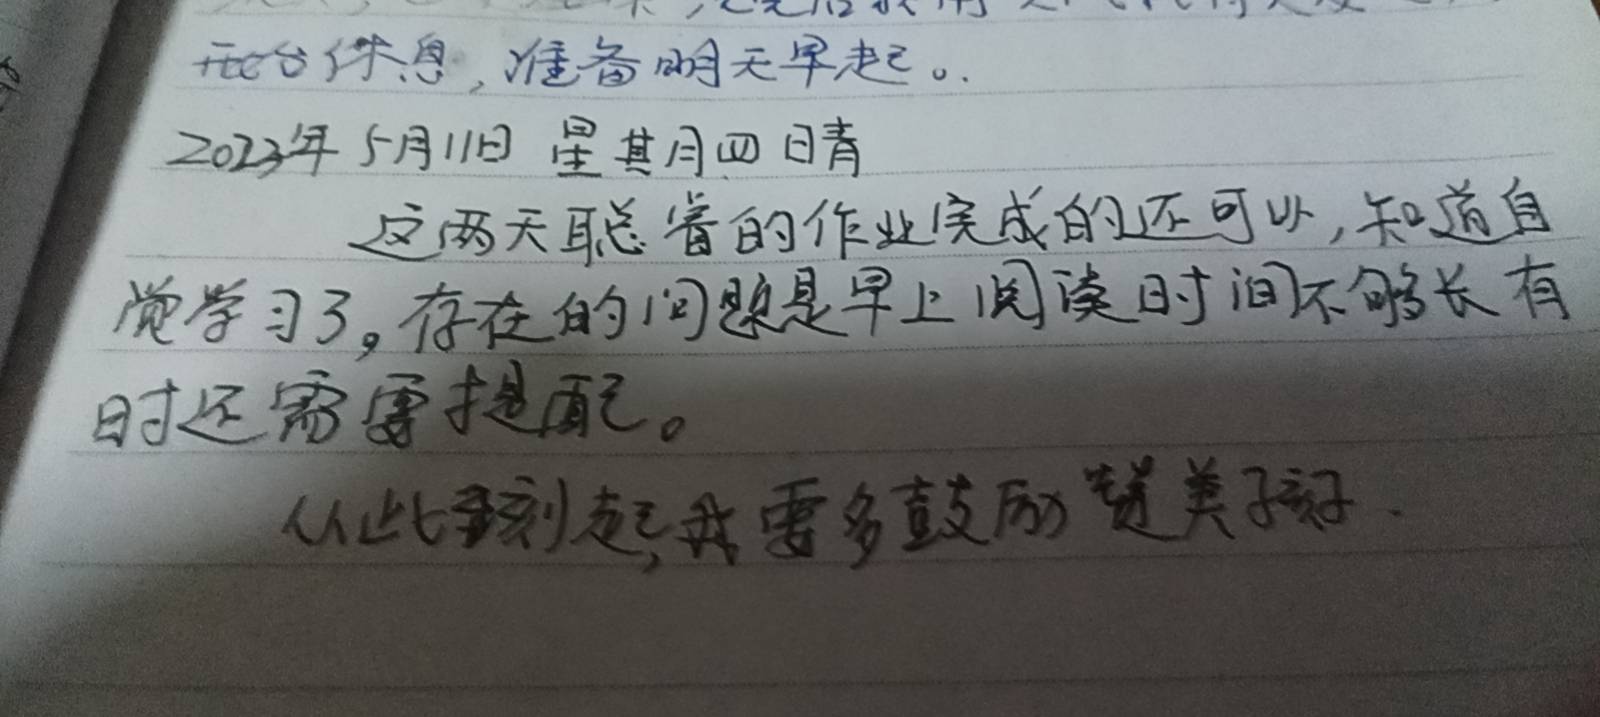 开始休息,准备明天早起。
2023年5月11日 星期四 晴
这两天聪睿的作业完成的还可以,知道自
觉学习了。存在的问题是早上阅读时间不够长有
时还需要提配。
从此刻起,我要多鼓励赞美孩子.